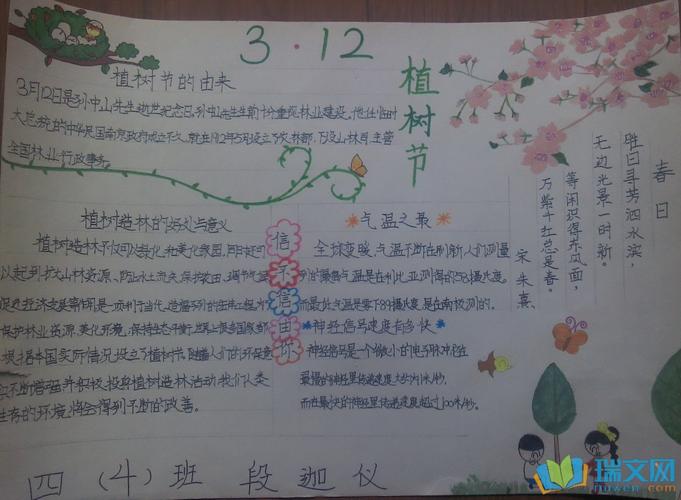 3·12
植树节
植树节的由来
3月12日是孙中山先生逝世纪念日,孙中山先生生前十分重视林业建设。他任临时
大总统的中华民国南京政府成立不久,就在1912年5月设立了农林部,下设山林司,主管
全国林业行政事务。
植树造林的好处与意义
植树造林不仅可以绿化和美化家园,同时还可
以起到扩大山林资源、防止水土流失、保护农田、调节气候
促进经济发展等作用,是一项利于当代、造福子孙的宏伟工程。为了
保护林业资源,美化环境,保持生态平衡,世界上很多国家都
根据本国实际情况设立了植树节。随着人们的环保意
识不断增强并积极投身植树造林活动,我们人类
生存的环境将会得到不断的改善。
信不信由你
气温之最
全球变暖,气温不断在刷新,人们测量
到的最高气温是在利比亚测得的58摄氏度。
而最低气温是零下89摄氏度,是在南极测的。
神经信号速度有多快
神经信号是一个微小的电子脉冲,它在
最慢的神经里传递速度大约为1米/秒,
而在最快的神经里传递速度超过100米/秒。
春日
胜日寻芳泗水滨,
无边光景一时新。
等闲识得东风面,
万紫千红总是春。
宋 朱熹
四(4)班 段迦仪
瑞文网
ruiwen.com